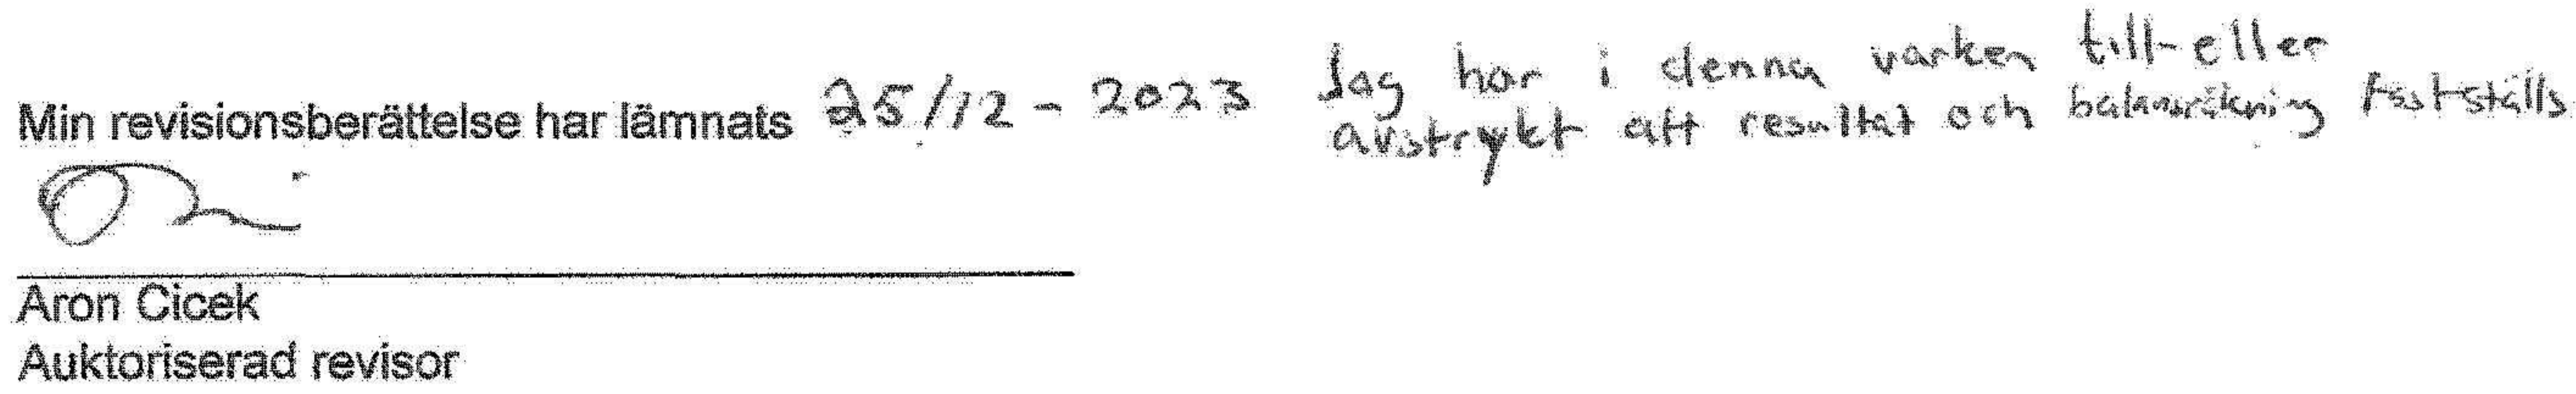 Min revisionsberättelse har lämnats 25/12 - 2023 Jag har i denna varken till- eller
avstrykt att resultat och balansräkning fastställs
Aron Cicek
Auktoriserad revisor